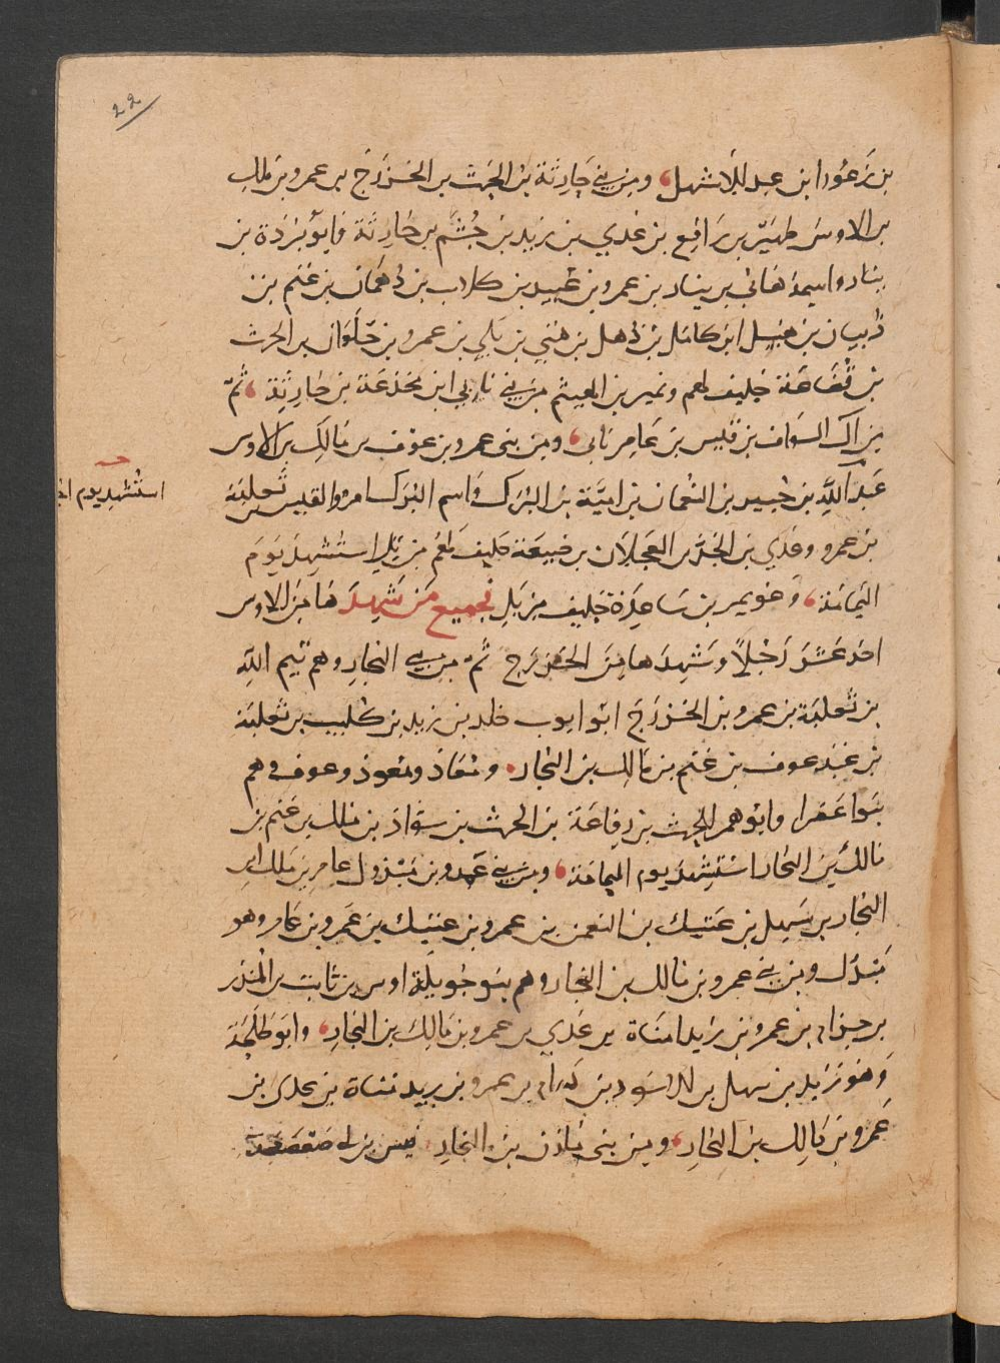 22
بن زعورا بن عبد الاشهل، ومن بني حارثة بن الحرث بن الخزرج بن عمرو بن ملك
بن الاوس ظهير بن رافع بن عدي بن زيد بن جشم بن حارثة وابو بردة بن
ينار واسمه هاني بن ينار بن عمرو بن عبيد بن كلاب بن دهمان بن غنم بن
ذبيان بن هبيل ابن كامل بن ذهل بن هني بن بلي بن عمرو بن حلوان بن الحرث
بن قضاعة حليف لهم ونمير بن الهيثم من بني نابي ابن مجدعة بن حارثة، ثم
من آل السواف بن قيس بن عامر نابى، ومن بنى عمرو بن عوف بن مالك بن الاوس
عبد الله بن جبير بن النعمان بن امية بن البرك واسم البرك امرو القيس بن ثعلبة
استشهد يوم
بن عمرو وعدي بن الجد بن العجلان بن ضبيعة حليف لهم من بلي استشهد يوم
اليمامة، وعويمر بن ساعدة حليف من بلي فجميع من شهدها من الاوس
احد عشر رجلا وشهدها من الخزرج ثم من بني النجار وهم تيم الله
بن ثعلبة بن عمرو بن الخزرج ابو ايوب خلد بن زيد بن كليب بن ثعلبة
بن عبد عوف بن غنم بن مالك بن النجار، ومعاذ ومعوذ وعوف وهم
بنوا عفرا وابوهم الحرث بن رفاعة بن الحرث بن سواد بن ملك بن غنم بن
مالك بن النجار استشهد يوم اليمامة، ومن بني عمرو بن مبذول عامر بن ملك ابن
النجار بن سهل بن عتيك بن النعمن بن عمرو بن عتيك بن عمرو بن عامر وهو
مبذل ومن بني عمرو بن مالك بن النجار وهم بنو جويلة اوس بن ثابت بن المنذر
بن حزام بن عمرو بن زيد امناة بن عدي بن عمرو بن مالك بن النجار، وابو طلحة
وهو زيد بن سهل بن الاسود بن حرام بن عمرو بن زيد مناة بن عدى بن
عمرو بن مالك بن النجار، ومن بنى مازن بن النجار قيس بن ابي صعصعة